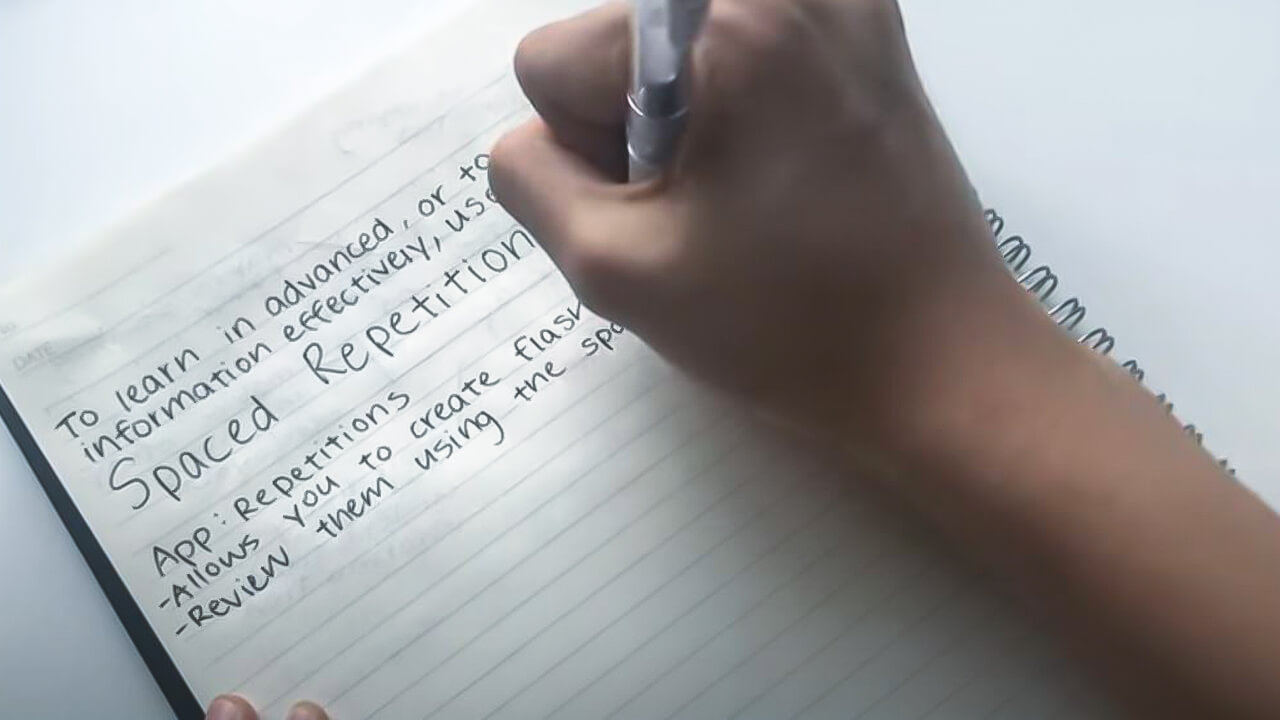 DATE
To learn in advanced, or to
information effectively, use
Spaced Repetition
App: Repetitions
-Allows you to create flash
-Review them using the spa